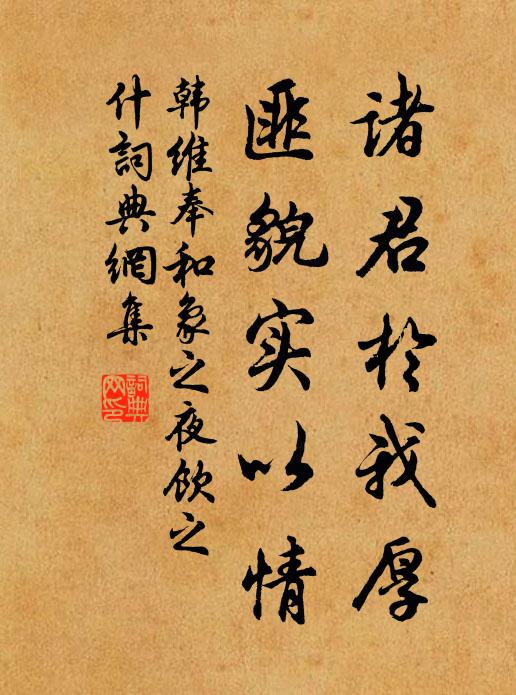 诸君於我厚
匪貌实以情
韩维奉和象之夜饮之
什詞典網集
詞典
网印